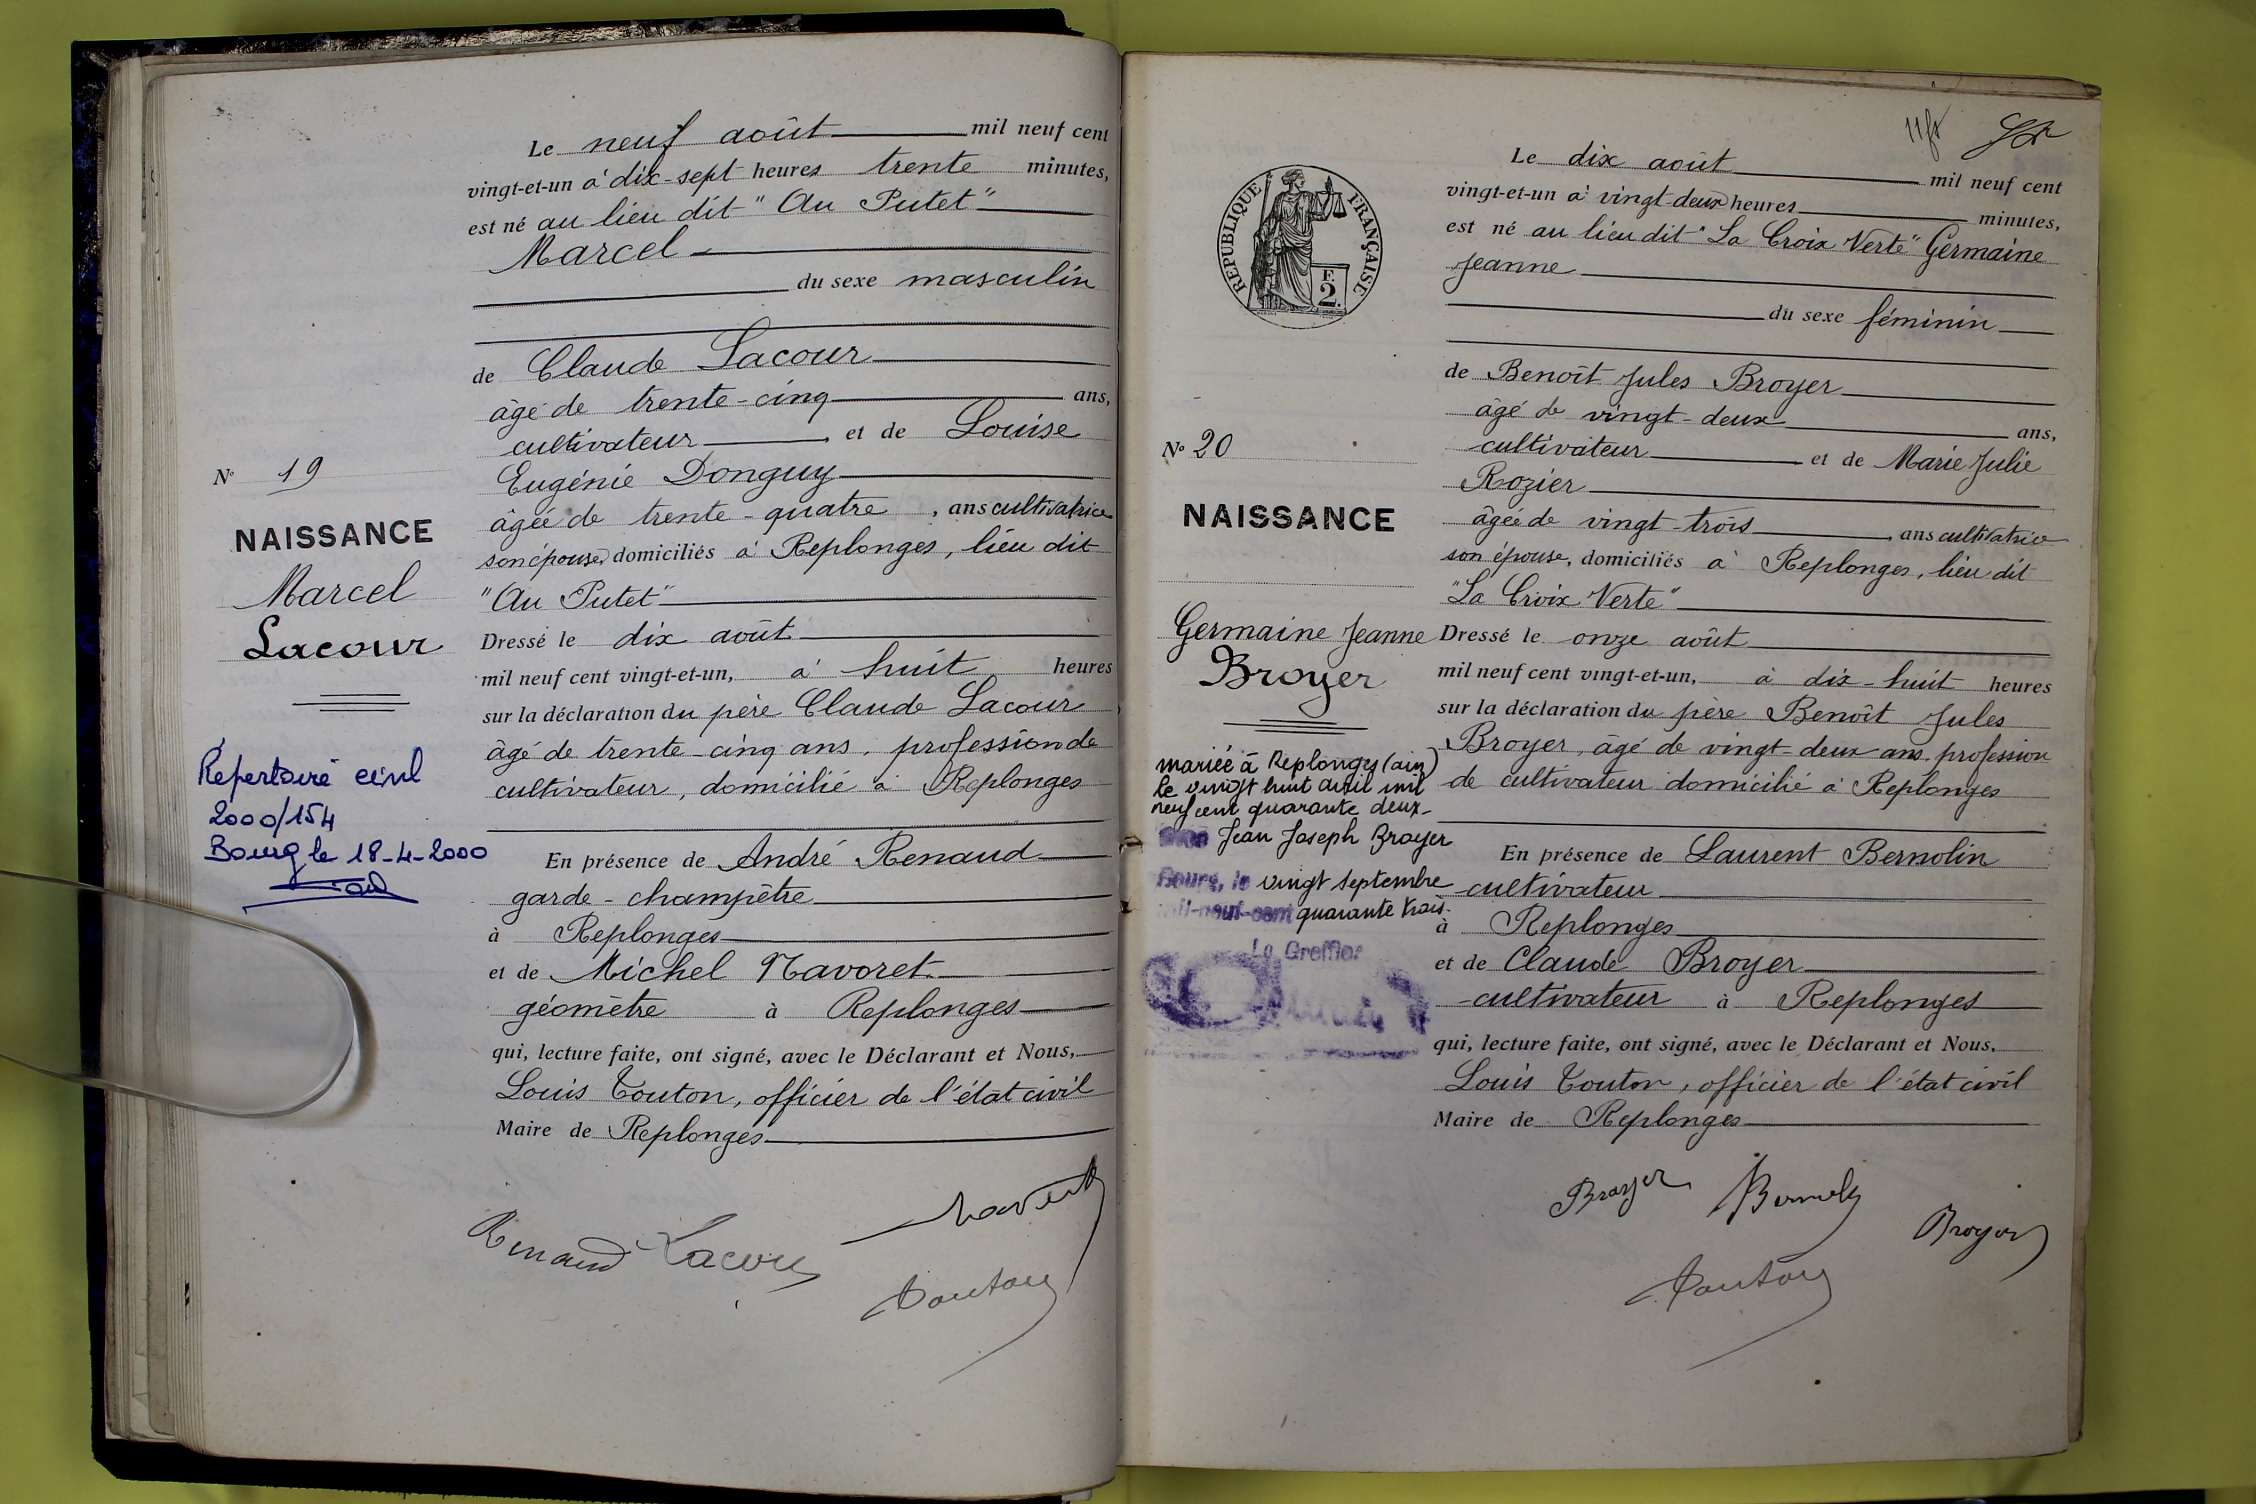 Le neuf août mil neuf cent
vingt-et-un à dix-sept heures trente minutes,
est né au lieu dit "Au Putet"
Marcel
du sexe masculin
de Claude Lacour
âgé de trente-cinq ans,
cultivateur, et de Louise
Eugénie Donguy
âgée de trente-quatre, ans cultivatrice
son épouse, domiciliés à Replonges, lieu dit
"Au Putet"
Dressé le dix août
mil neuf cent vingt-et-un, à huit heures
sur la déclaration du père Claude Lacour
âgé de trente-cinq ans, profession de
cultivateur, domicilié à Replonges
En présence de André Renaud
garde-champêtre
à Replonges
et de Michel Navoret
géomètre à Replonges
qui, lecture faite, ont signé, avec le Déclarant et Nous,
Louis Touton, officier de l'état civil
Maire de Replonges
Renaud Lacour
Touton
No 19
NAISSANCE
Marcel
Lacour
Répertoire civil
2000/154
Bourg le 18-4-2000
REPUBLIQUE FRANÇAISE
F.
2.
No 20
NAISSANCE
Germaine Jeanne
Broyer
mariée à Replonges (ain)
le vingt huit avril mil
neuf cent quarante deux
avec Jean Joseph Broyer
Bourg, le vingt septembre
mil-neuf-cent quarante trois.
Le Greffier
Le dix août mil neuf cent
vingt-et-un à vingt-deux heures minutes,
est né au lieu dit "La Croix Verte" Germaine
Jeanne
du sexe féminin
de Benoît Jules Broyer
âgé de vingt-deux ans,
cultivateur et de Marie Julie
Rozier
âgée de vingt-trois, ans cultivatrice
son épouse, domiciliés à Replonges, lieu dit
"La Croix Verte"
Dressé le onze août
mil neuf cent vingt-et-un, à dix-huit heures
sur la déclaration du père Benoît Jules
Broyer, âgé de vingt-deux ans, profession
de cultivateur domicilié à Replonges
En présence de Laurent Bernolin
cultivateur
à Replonges
et de Claude Broyer
cultivateur à Replonges
qui, lecture faite, ont signé, avec le Déclarant et Nous.
Louis Touton, officier de l'état civil
Maire de Replonges
Broyer
Broyer
Touton